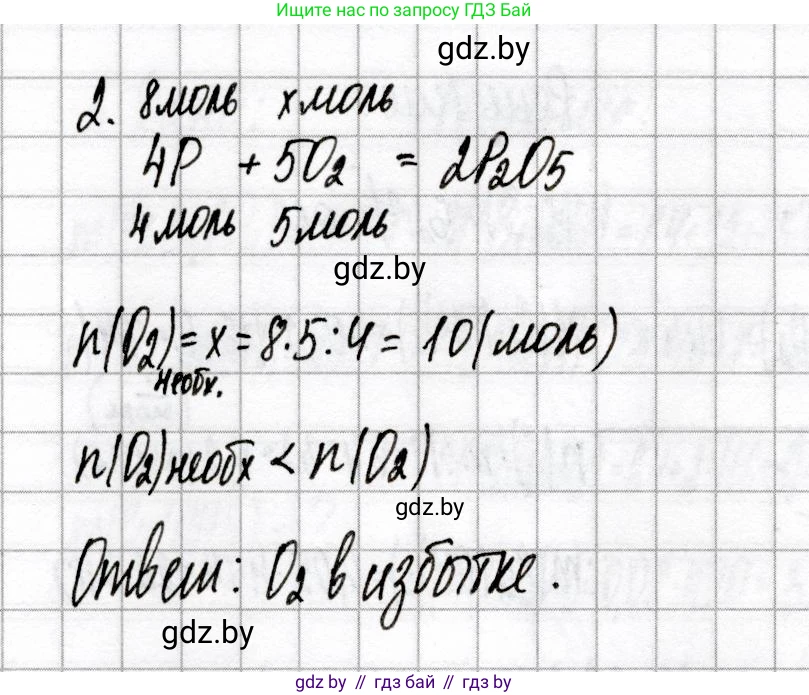 Ищите нас по запросу ГДЗ Бай
gdz.by
2. 8моль хмоль
4P + 5O₂ = 2P₂O₅
4моль 5моль
gdz.by
n(O₂)необх. = x = 8·5:4 = 10(моль)
n(O₂)необх < n(O₂)
gdz.by
Ответ: O₂ в избытке.
gdz.by
gdz.by // гдз бай // gdz.by